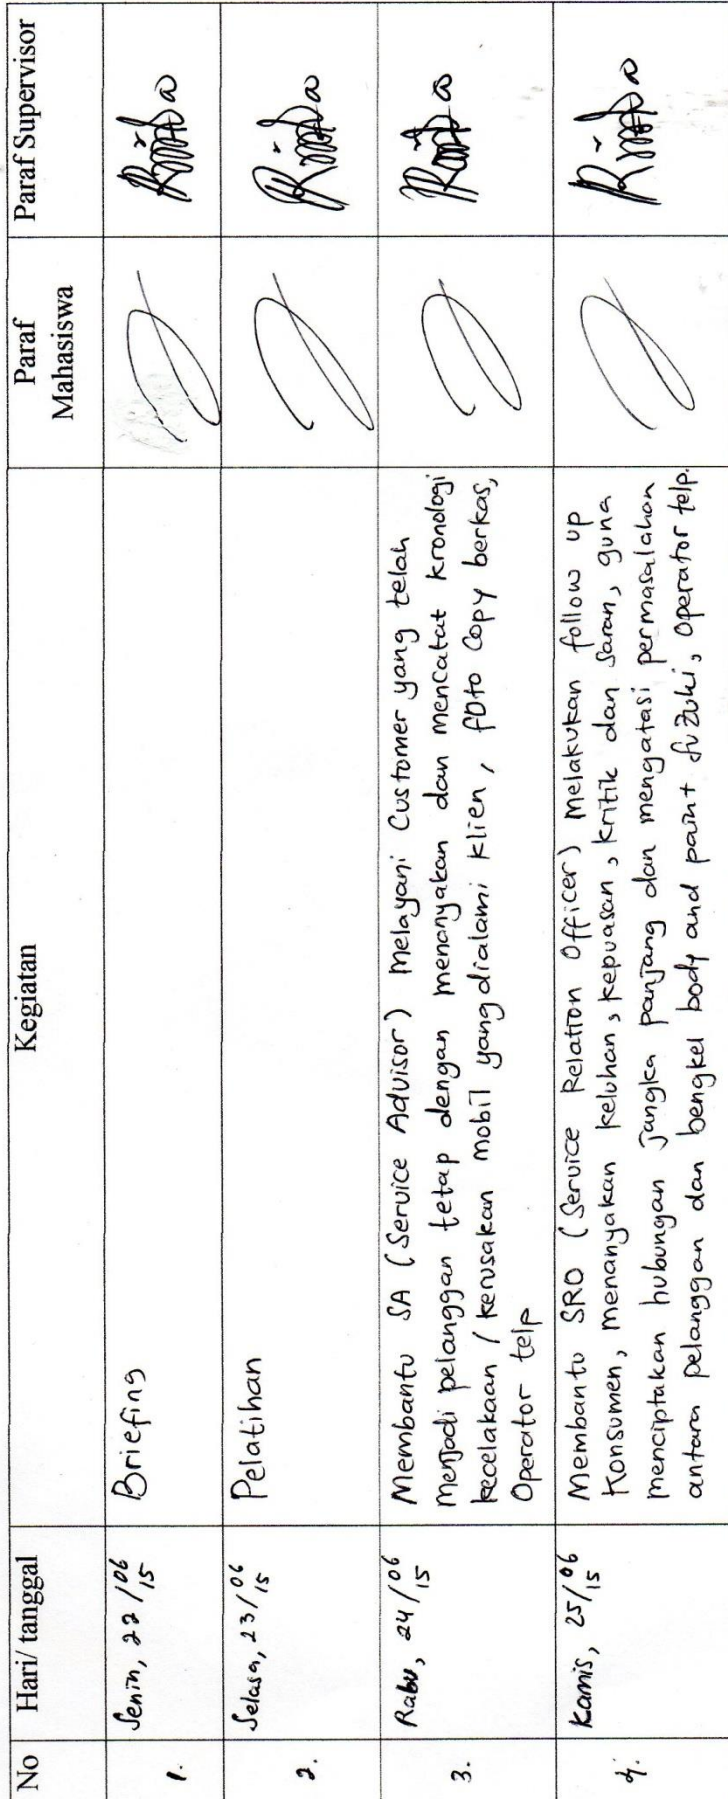 No Hari/ tanggal Kegiatan Paraf Mahasiswa Paraf Supervisor
1. Senin, 22/06 15 Briefing
2. Selasa, 23/06 15 Pelatihan
3. Rabu, 24/06 15 Membantu SA (Service Advisor) melayani Customer yang telah
menjadi pelanggan tetap dengan menanyakan dan mencatat kronologi
kecelakaan / kerusakan mobil yang dialami klien, foto copy berkas,
Operator telp
4. Kamis, 25/06 15 Membantu SRO (Service Relation Officer) melakukan follow up
Konsumen, menanyakan keluhan, kepuasan, kritik dan saran, guna
menciptakan hubungan jangka panjang dan mengatasi permasalahan
antara pelanggan dan bengkel body and paint suzuki, operator telp.